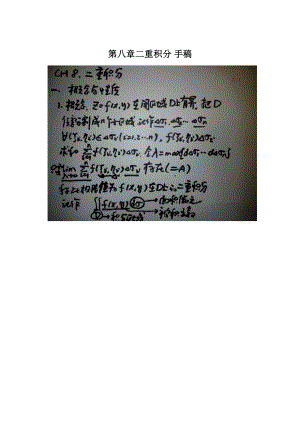 第八章二重积分 手稿
CH 8. 二重积分
一、概念与性质
1. 概念: Z=f(x,y)在闭区域D上有界, 把D
任意分割成n个小区域, 记作 Δσ₁ Δσ₂ … Δσₙ
∀(ξᵢ,ηᵢ)∈Δσᵢ(i=1,2,…,n), f(ξᵢ,ηᵢ)Δσᵢ
求和 Σf(ξᵢ,ηᵢ)Δσᵢ 令λ=max{Δσ₁…Δσₙ}
lim Σf(ξᵢ,ηᵢ)Δσᵢ 存在(=A)
f(x,y)在D上的二重积分
记作 ∬f(x,y)dσ